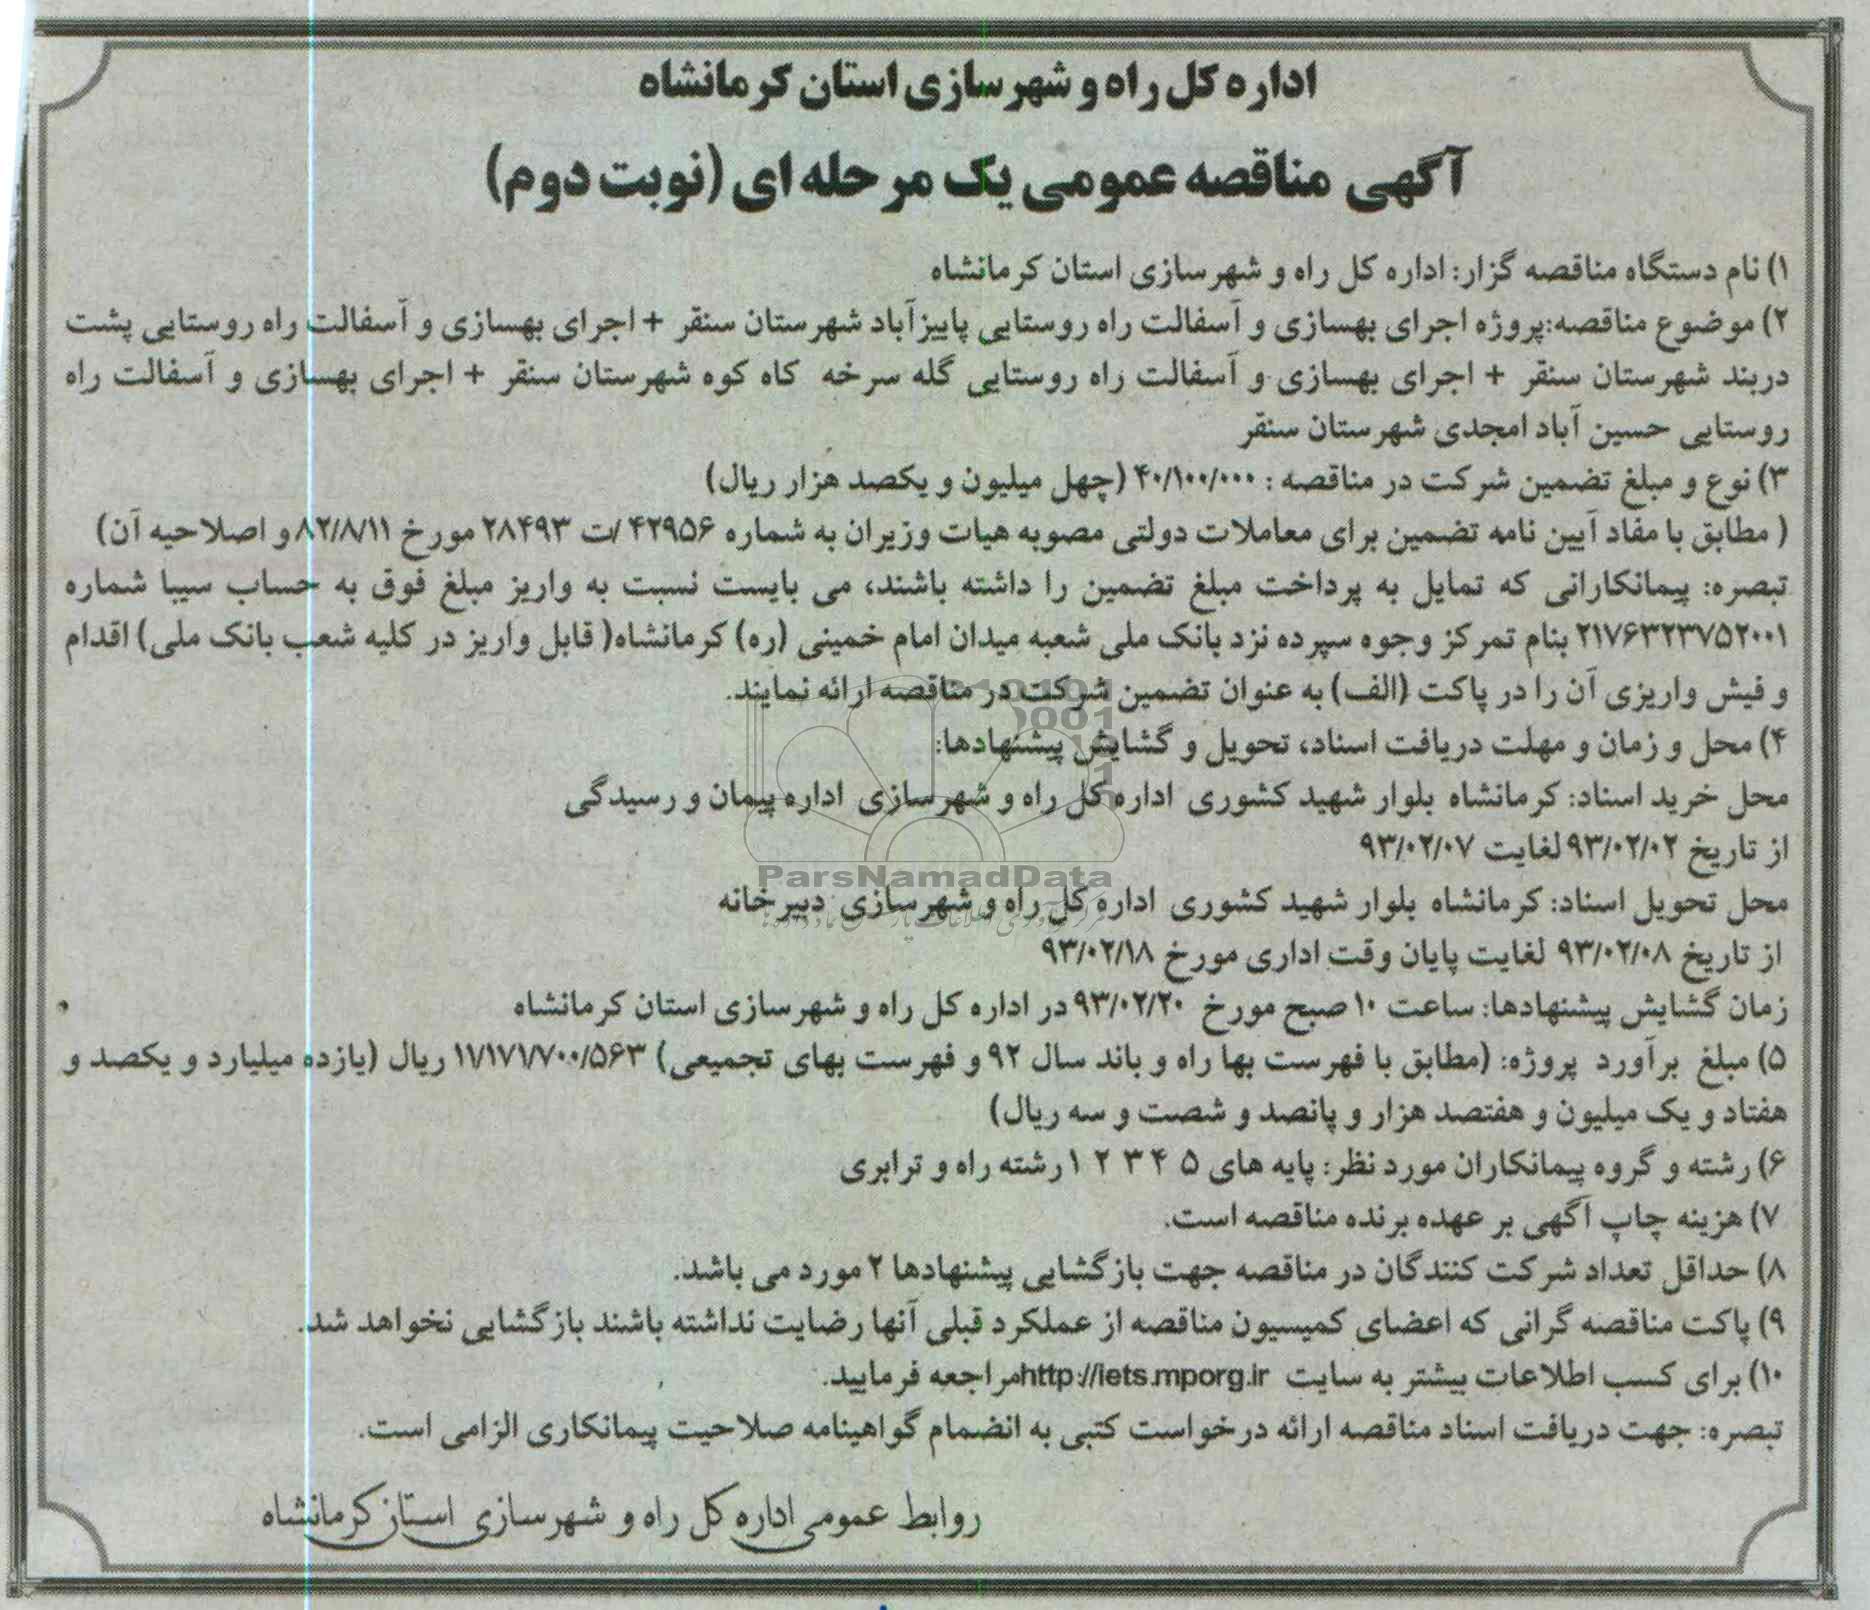 اداره کل راه و شهرسازی استان کرمانشاه
آگهی مناقصه عمومی یک مرحله ای (نوبت دوم)
۱) نام دستگاه مناقصه گزار: اداره کل راه و شهرسازی استان کرمانشاه
۲) موضوع مناقصه:پروژه اجرای بهسازی و آسفالت راه روستایی پاییزآباد شهرستان سنقر + اجرای بهسازی و آسفالت راه روستایی پشت
دربند شهرستان سنقر + اجرای بهسازی و آسفالت راه روستایی گله سرخه کاه کوه شهرستان سنقر + اجرای بهسازی و آسفالت راه
روستایی حسین آباد امجدی شهرستان سنقر
۳) نوع و مبلغ تضمین شرکت در مناقصه : ۴۰/۱۰۰/۰۰۰ (چهل میلیون و یکصد هزار ریال)
( مطابق با مفاد آیین نامه تضمین برای معاملات دولتی مصوبه هیات وزیران به شماره ۴۲۹۵۶ /ت ۲۸۴۹۳ مورخ ۸۲/۸/۱۱ و اصلاحیه آن)
تبصره: پیمانکارانی که تمایل به پرداخت مبلغ تضمین را داشته باشند، می بایست نسبت به واریز مبلغ فوق به حساب سیبا شماره
۲۱۷۶۳۲۳۷۵۲۰۰۱ بنام تمرکز وجوه سپرده نزد بانک ملی شعبه میدان امام خمینی (ره) کرمانشاه( قابل واریز در کلیه شعب بانک ملی) اقدام
و فیش واریزی آن را در پاکت (الف) به عنوان تضمین شرکت در مناقصه ارائه نمایند.
۴) محل و زمان و مهلت دریافت اسناد، تحویل و گشایش پیشنهادها:
محل خرید اسناد: کرمانشاه بلوار شهید کشوری اداره کل راه و شهرسازی اداره پیمان و رسیدگی
از تاریخ ۹۳/۰۲/۰۲ لغایت ۹۳/۰۲/۰۷
ParsNamadData
محل تحویل اسناد: کرمانشاه بلوار شهید کشوری اداره کل راه و شهرسازی دبیرخانه
از تاریخ ۹۳/۰۲/۰۸ لغایت پایان وقت اداری مورخ ۹۳/۰۲/۱۸
زمان گشایش پیشنهادها: ساعت ۱۰ صبح مورخ ۹۳/۰۲/۲۰ در اداره کل راه و شهرسازی استان کرمانشاه
۵) مبلغ برآورد پروژه: (مطابق با فهرست بها راه و باند سال ۹۲ و فهرست بهای تجمیعی) ۱۱/۱۷۱/۷۰۰/۵۶۳ ریال (یازده میلیارد و یکصد و
هفتاد و یک میلیون و هفتصد هزار و پانصد و شصت و سه ریال)
۶) رشته و گروه پیمانکاران مورد نظر: پایه های ۵ ۴ ۳ ۲ ۱ رشته راه و ترابری
۷) هزینه چاپ آگهی بر عهده برنده مناقصه است.
۸) حداقل تعداد شرکت کنندگان در مناقصه جهت بازگشایی پیشنهادها ۲ مورد می باشد.
۹) پاکت مناقصه گرانی که اعضای کمیسیون مناقصه از عملکرد قبلی آنها رضایت نداشته باشند بازگشایی نخواهد شد.
۱۰) برای کسب اطلاعات بیشتر به سایت http://iets.mporg.ir مراجعه فرمایید.
تبصره: جهت دریافت اسناد مناقصه ارائه درخواست کتبی به انضمام گواهینامه صلاحیت پیمانکاری الزامی است.
روابط عمومی اداره کل راه و شهرسازی استان کرمانشاه